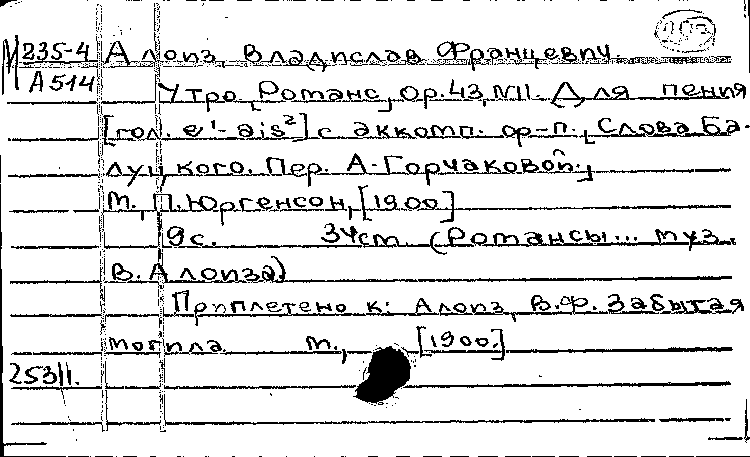 М235-4 Алоиз, Владислав Францевич.
А514 Утро. [Романс], Ор.43, №11. Для пения
[гол. e'-ais²] с аккомп. ф-п., [Слова Ба-
луцкого. Пер. А.Горчаковой.]
М., П.Юргенсон, [1900]
9с. 34см. (Романсы... муз.
В. Алоиза)
Приплетено к: Алоиз, В.Ф. Забытая
могила М., [1900.]